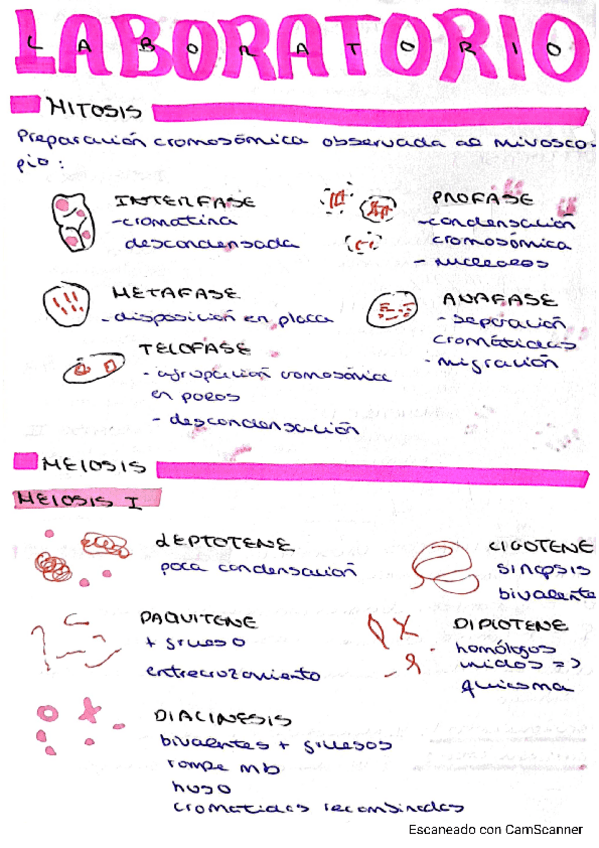 LABORATORIO
LABORATORIO
MITOSIS
Preparación cromosómica observada al mivosco-
pio:
INTERFASE
-cromatina
descondensada
PROFASE
-condensación
cromosómica
- nucleolos
METAFASE
- disposición en placa
ANAFASE
- separación
cromátidas
- migración
TELOFASE
- agrupación cromosómica
en polos
- descondensación
MEIOSIS
MEIOSIS I
LEPTOTENE
poca condensación
CIGOTENE
sinapsis
bivalente
PAQUITENE
+ grueso
entrecruzamiento
DIPLOTENE
homólogos
unidos =>
quiasma
DIACINESIS
bivalentes + gruesos
rompe mb
huso
cromatidas recombinadas
Escaneado con CamScanner